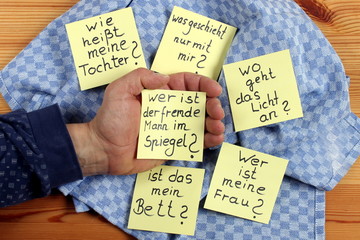 wie
heißt
meine
Tochter?
was geschieht
nur mit
mir?
wo
geht
das
Licht
an?
wer ist
der frende
Mann im
Spiegel?
ist das
mein
Bett?
Wer
ist
meine
Frau?